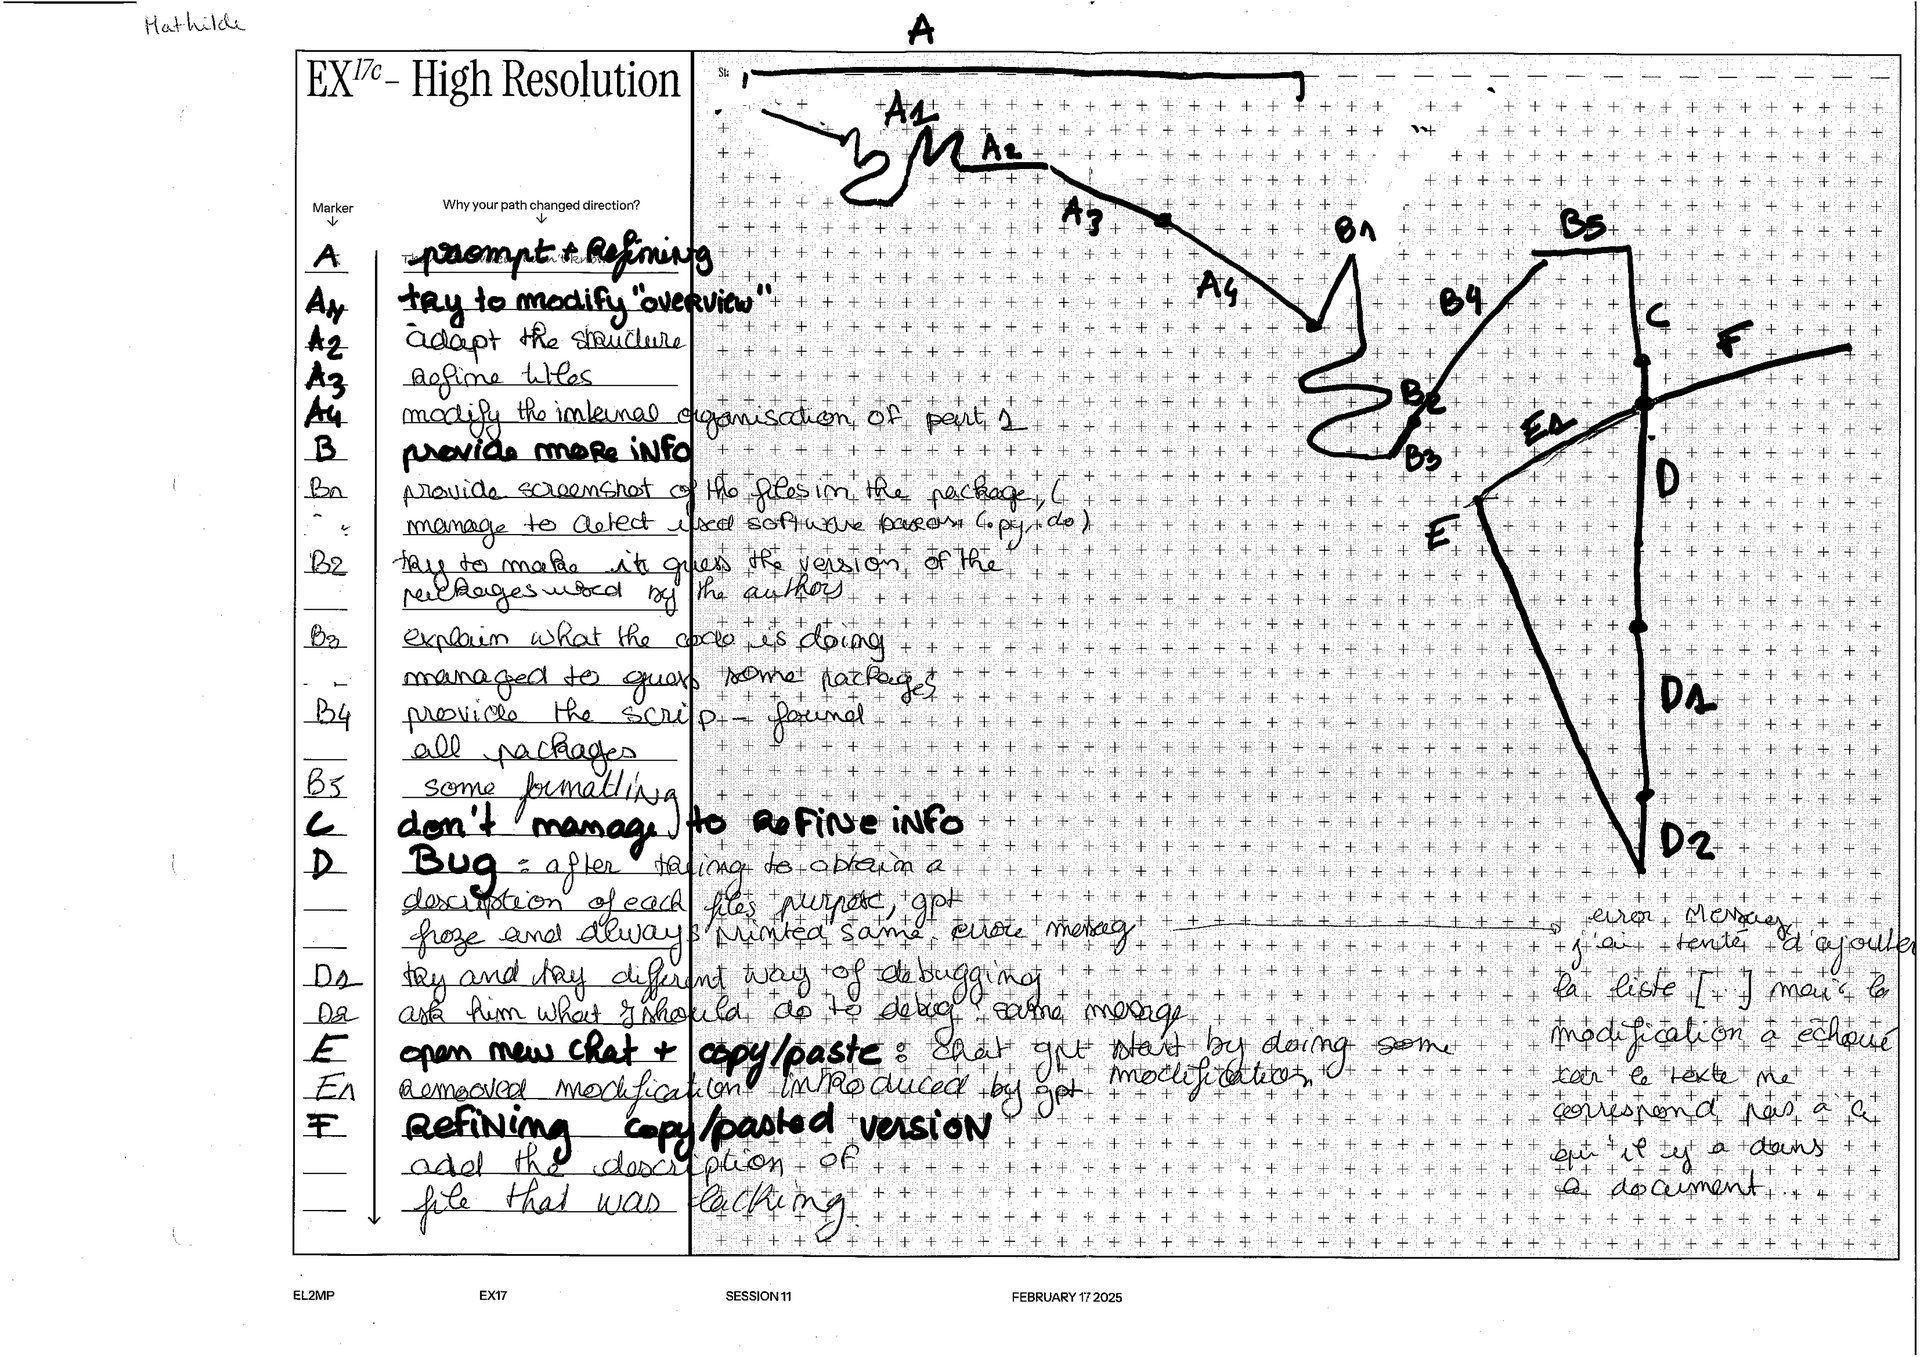 Mathilde
A
EX17c - High Resolution
Marker
Why your path changed direction?
A prompt + Refining
A1 try to modify "overview"
A2 adapt the structure
A3 Refine titles
A4 modify the internal organisation of part 1
B provide more info
B1 provide screenshot of the files in the package, (
manage to detect used software
B2 try to make it guess the version of the
packages used by the authors
B3 explain what the code is doing
managed to guess some packages
B4 provide the scrip - found
all packages
B5 some formatting
C don't manage to Refine info
D Bug : after trying to obtain a
description of each files purpose, gpt
froze and always printed same errore messag
D1 try and try different way of debugging
D2 ask him what I should do to debug : same message
E open new chat + copy/paste : chat gpt start by doing some
modification
E1 Removed modification introduced by gpt
F Refining copy/pasted version
add the description of
file that was lacking
A1
A2
A3
A4
B1
B2
B3
B4
B5
C
D
D1
D2
E
E1
F
error messag
j'ai tenté d'ajouter
la liste [...] mais la
modification a échoué
car le texte ne
correspond pas à c
qu'il y a dans
le document...
EL2MP
EX17
SESSION 11
FEBRUARY 17 2025